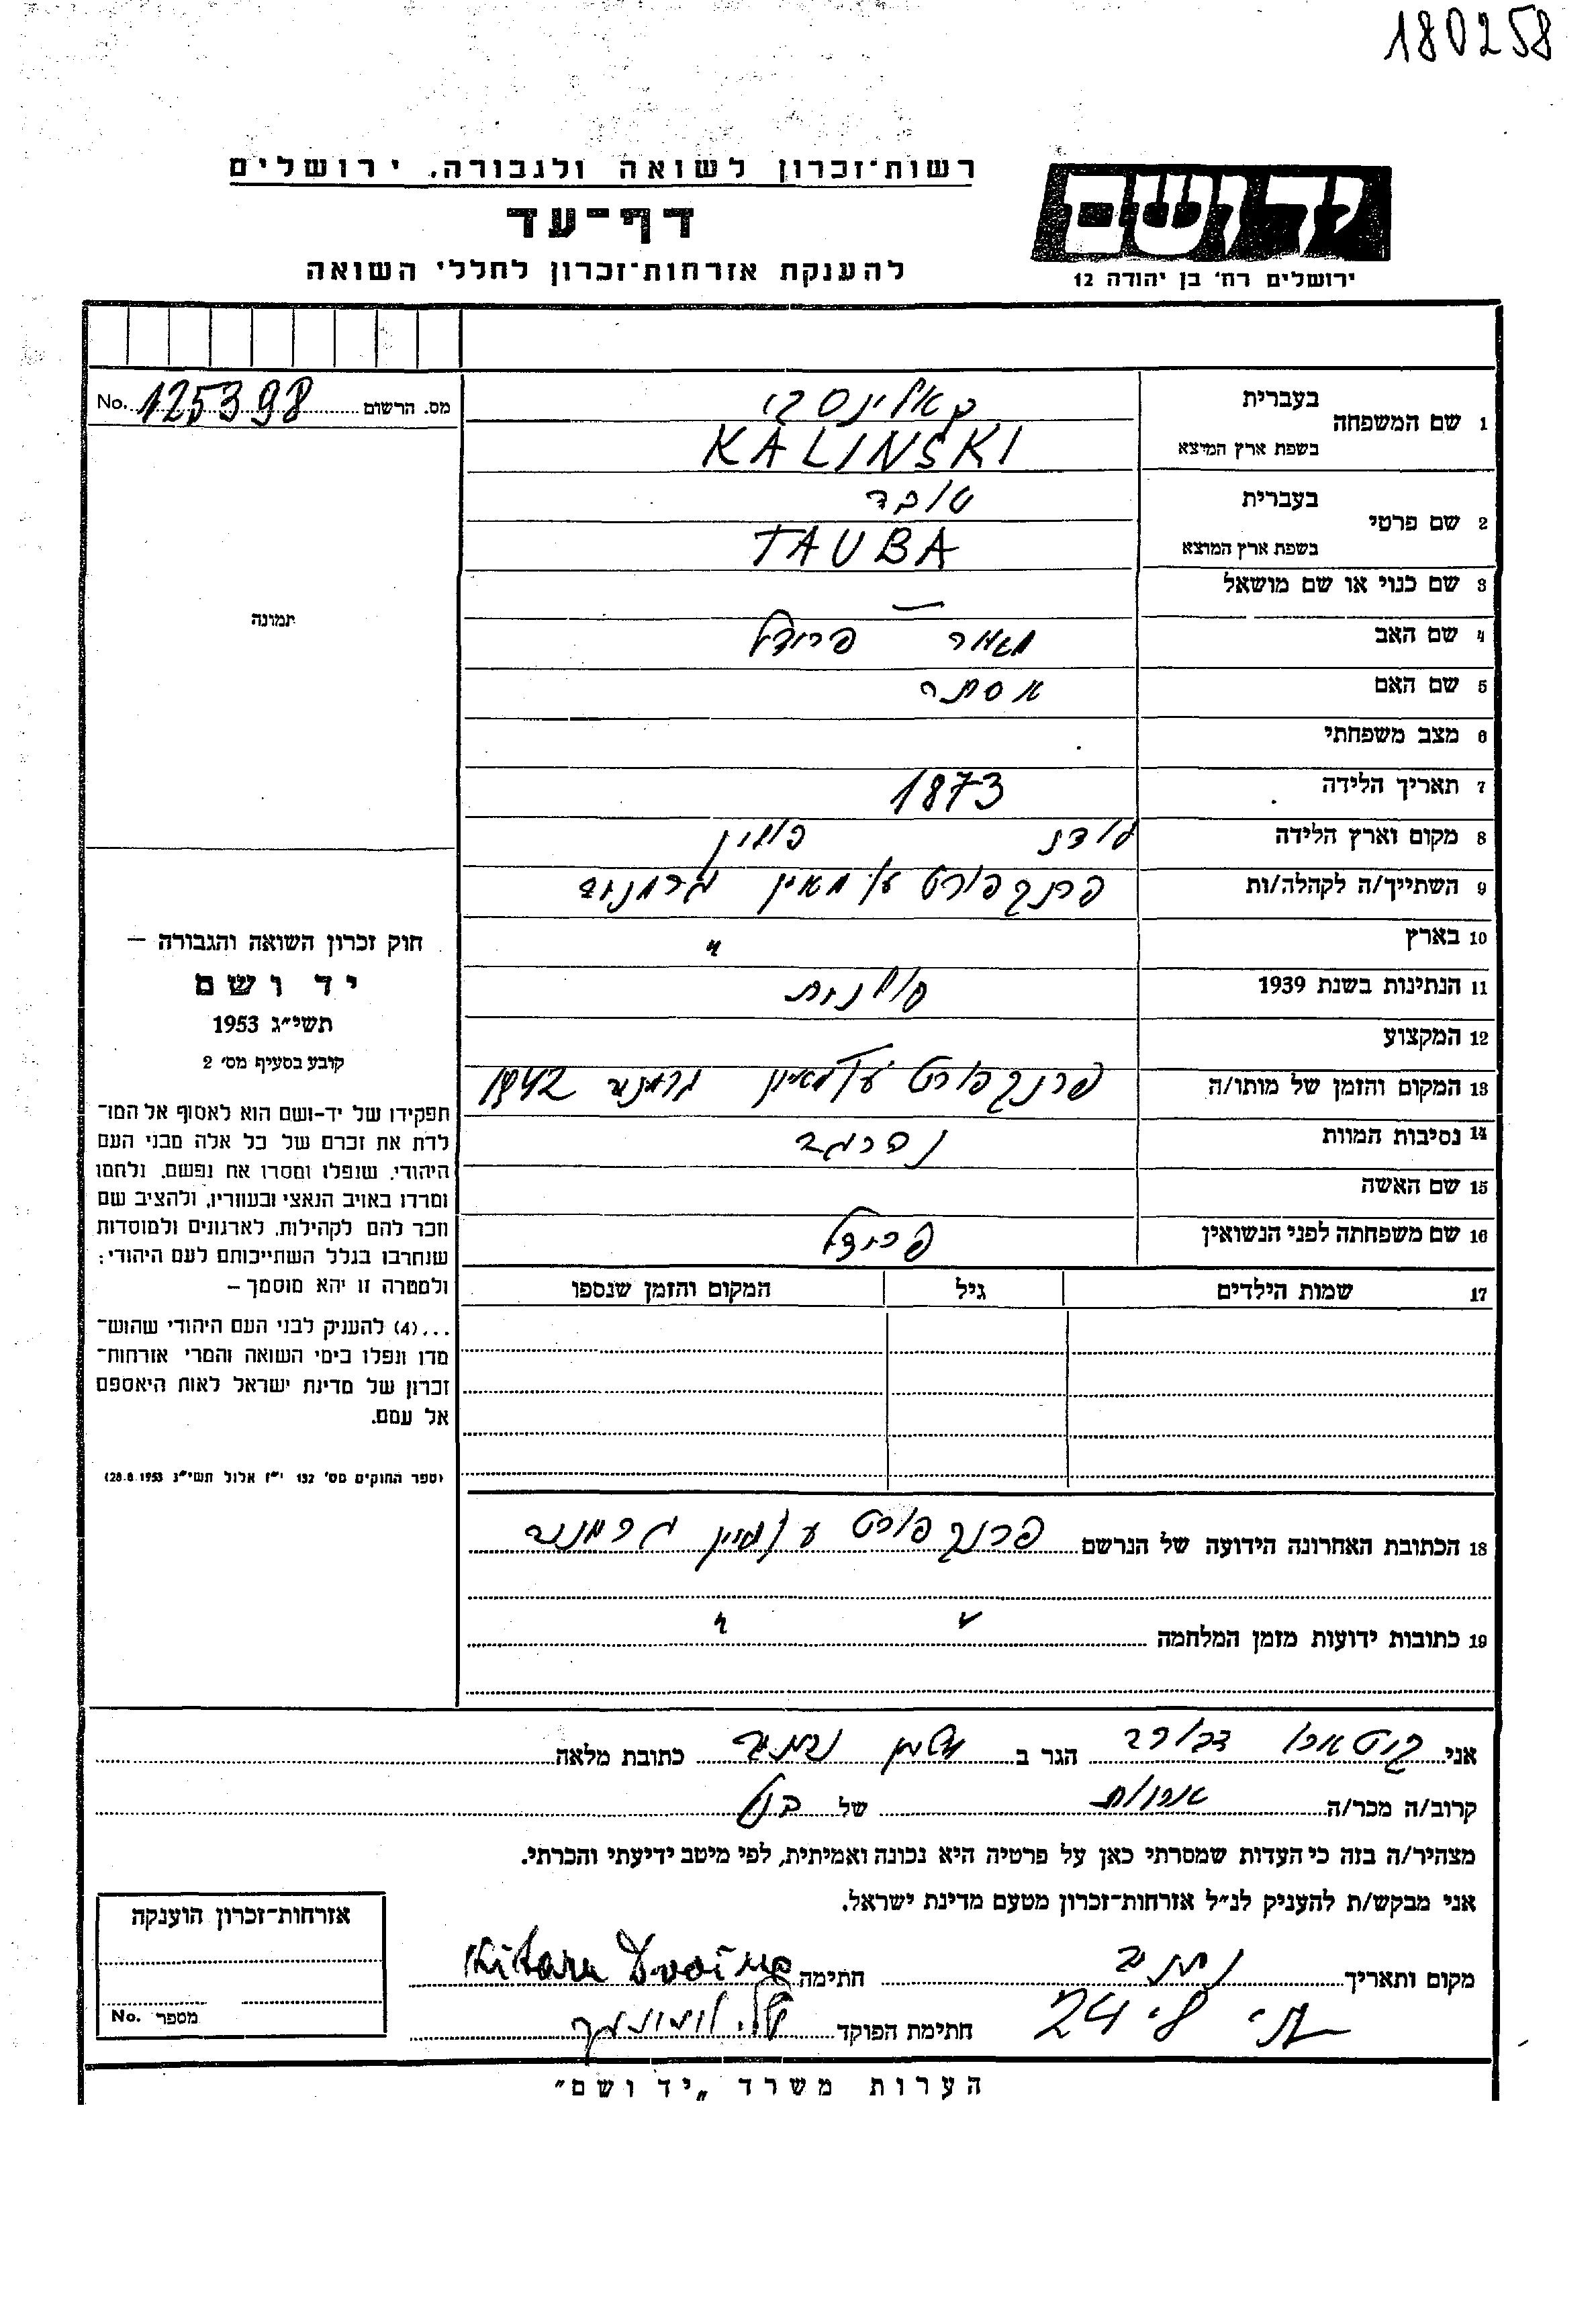 180258
רשות־זכרון לשואה ולגבורה, ירושלים
יד ושם
דף־עד
להענקת אזרחות־זכרון לחללי השואה
ירושלים רח׳ בן יהודה 12
מס. הרשום 125398 No.
1 שם המשפחה בעברית קאלינסקי
בשפת ארץ המוצא KALINSKI
2 שם פרטי בעברית טובה
בשפת ארץ המוצא TAUBA
3 שם כנוי או שם מושאל —
תמונה
4 שם האב מאיר
5 שם האם אסתר
6 מצב משפחתי
7 תאריך הלידה 1873
8 מקום וארץ הלידה לודז פולין
9 השתייך/ה לקהלה/ות פרנקפורט ע/ מאין גרמניה
10 בארץ "
11 הנתינות בשנת 1939 פולנית
12 המקצוע
13 המקום והזמן של מותו/ה פרנקפורט ע/מאיין גרמניה 1942
14 נסיבות המוות נהרגה
15 שם האשה
16 שם משפחתה לפני הנשואין
17 שמות הילדים גיל המקום והזמן שנספו
חוק זכרון השואה והגבורה —
יד ושם
תשי״ג 1953
קובע בסעיף מס׳ 2
תפקידו של יד-ושם הוא לאסוף אל המו־
לדת את זכרם של כל אלה מבני העם
היהודי, שנפלו ומסרו את נפשם, נלחמו
ומרדו באויב הנאצי ובעוזריו, ולהציב שם
וזכר להם לקהילות, לארגונים ולמוסדות
שנחרבו בגלל השתייכותם לעם היהודי:
ולמטרה זו יהא מוסמך –
...(4) להעניק לבני העם היהודי שהוש־
מדו ונפלו בימי השואה והמרי אזרחות־
זכרון של מדינת ישראל לאות היאספם
אל עמם.
(ספר החוקים מס׳ 132 י״ז אלול תשי״ג 28.8.1953)
18 הכתובת האחרונה הידועה של הנרשם פרנקפורט ע/מיין גרמניה
19 כתובות ידועות מזמן המלחמה " "
אני דבורה הגר ב נתניה כתובת מלאה
קרוב/ה מכר/ה של
מצהיר/ה בזה כי העדות שמסרתי כאן על פרטיה היא נכונה ואמיתית, לפי מיטב ידיעתי והכרתי.
אני מבקש/ת להעניק לנ״ל אזרחות־זכרון מטעם מדינת ישראל.
מקום ותאריך נתניה חתימה
24
חתימת הפוקד
אזרחות־זכרון הוענקה
מספר No.
הערות משרד „יד ושם"